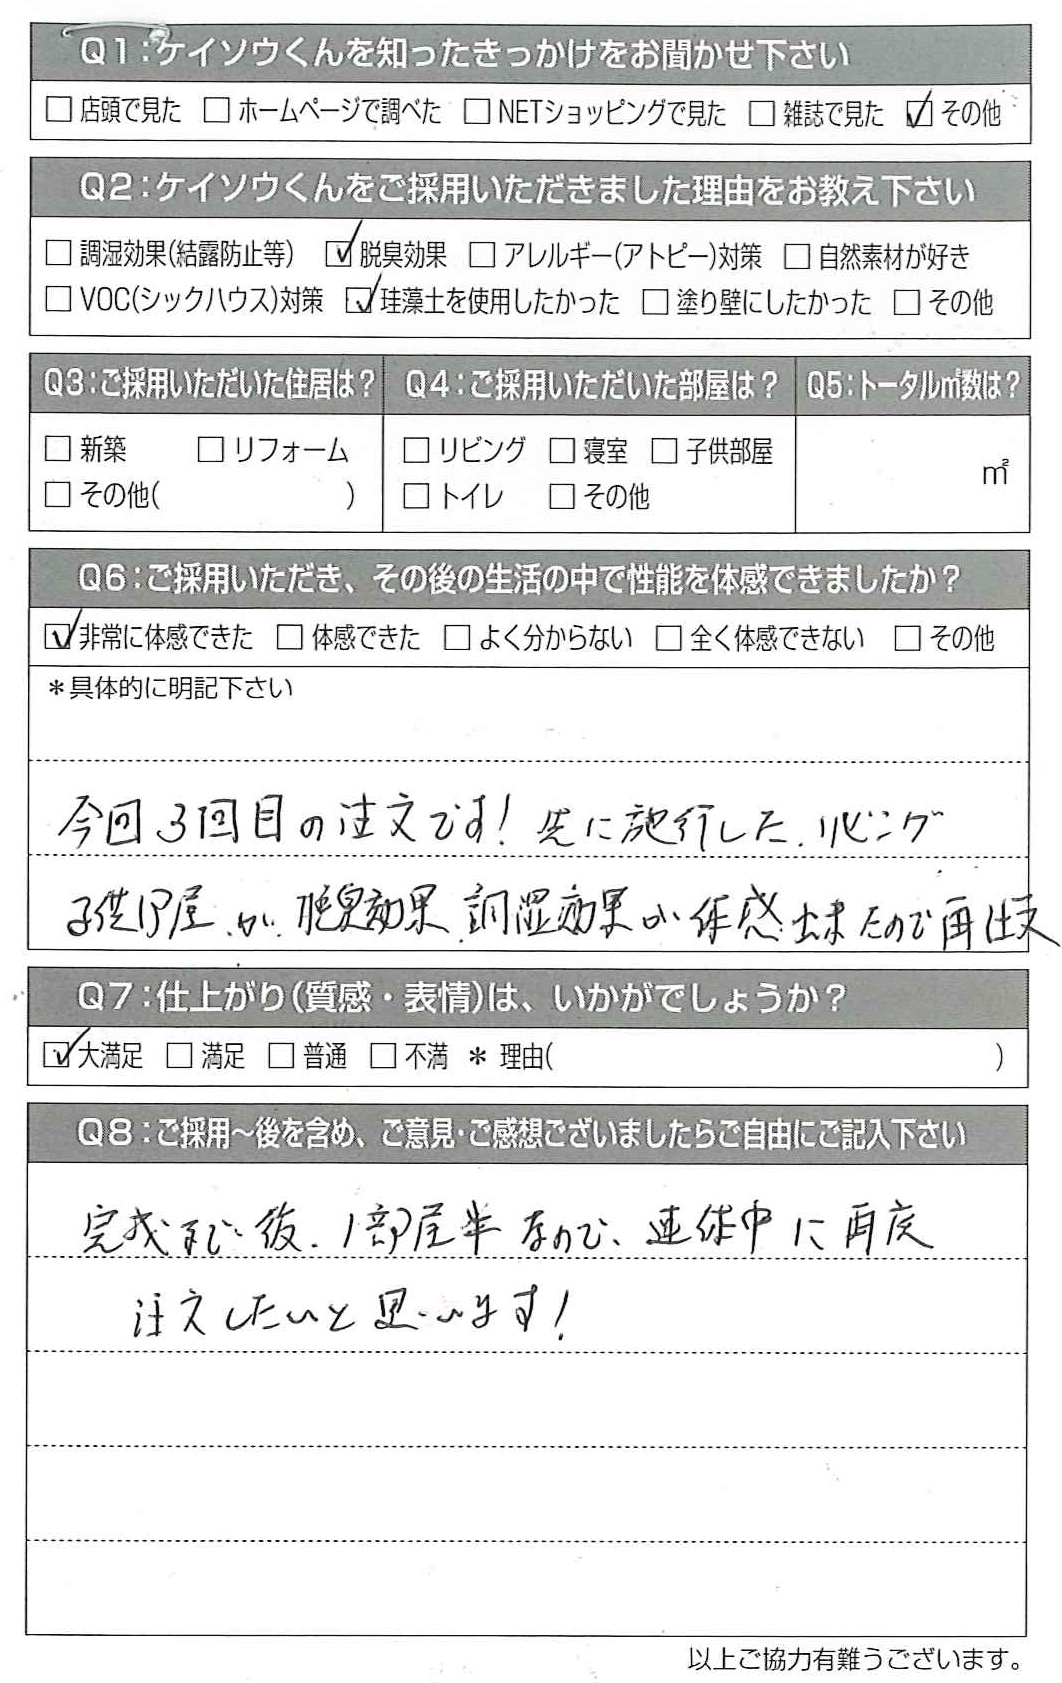 Q1:ケイソウくんを知ったきっかけをお聞かせ下さい
□店頭で見た □ホームページで調べた □NETショッピングで見た □雑誌で見た ☑その他
Q2:ケイソウくんをご採用いただきました理由をお教え下さい
□調湿効果(結露防止等) ☑脱臭効果 □アレルギー(アトピー)対策 □自然素材が好き
□VOC(シックハウス)対策 ☑珪藻土を使用したかった □塗り壁にしたかった □その他
Q3:ご採用いただいた住居は?
□新築 □リフォーム
□その他( )
Q4:ご採用いただいた部屋は?
□リビング □寝室 □子供部屋
□トイレ □その他
Q5:トータル㎡数は?
㎡
Q6:ご採用いただき、その後の生活の中で性能を体感できましたか?
☑非常に体感できた □体感できた □よく分からない □全く体感できない □その他
*具体的に明記下さい
今回3回目の注文です! 先に施行した、リビング
子供部屋が、脱臭効果、調湿効果が体感出来たので再注文
Q7:仕上がり(質感・表情)は、いかがでしょうか?
☑大満足 □満足 □普通 □不満 *理由( )
Q8:ご採用～後を含め、ご意見・ご感想ございましたらご自由にご記入下さい
完成まで後、1部屋半なので、連休中に再度
注文したいと思います!
以上ご協力有難うございます。